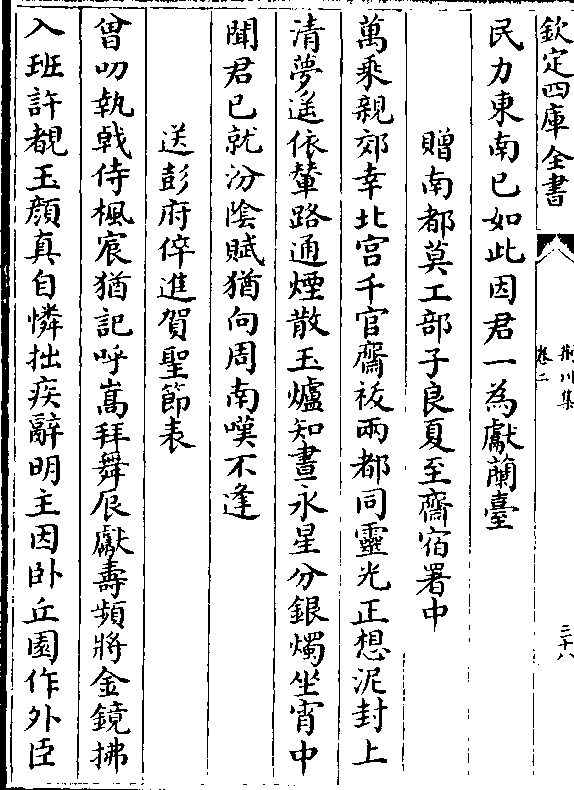 欽定四庫全書
荆川集
卷二
三十八
民力東南已如此因君一為獻蘭臺
贈南都莫工部子良夏至齋宿署中
萬乘親郊幸北宫千官齋祓兩都同靈光正想泥封上
清夢遥依輦路通煙散玉爐知晝永星分銀燭坐宵中
聞君已就汾陰賦猶向周南嘆不逢
送彭府倅進賀聖節表
曾叨執戟侍楓宸猶記呼嵩拜舞辰獻壽頻將金鏡拂
入班許覩玉顔真自憐拙疾辭明主因卧丘園作外臣